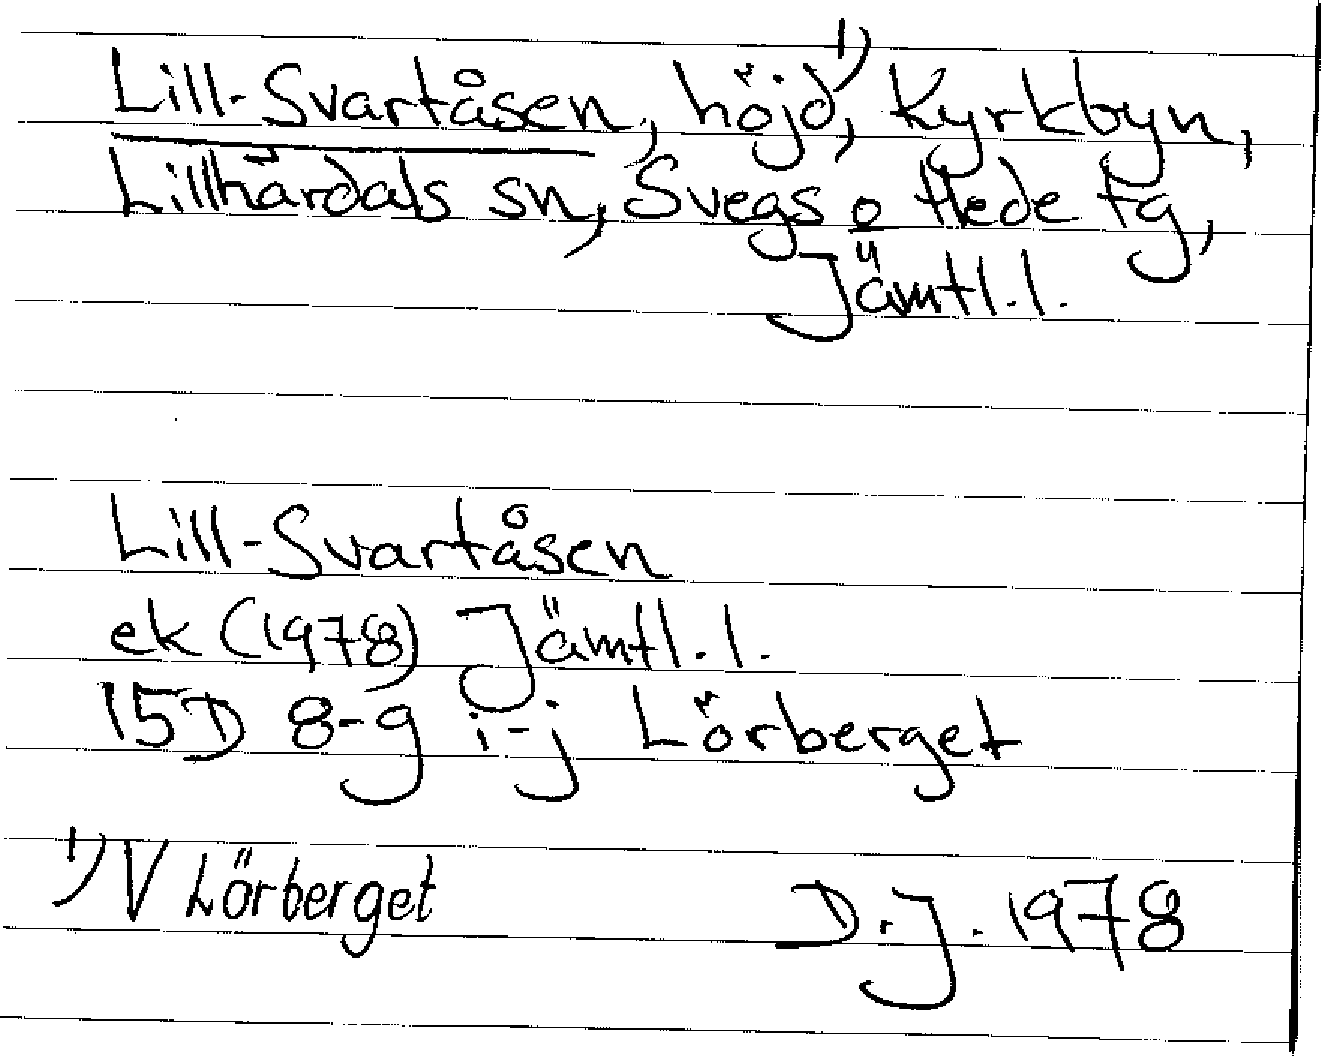 Lill-Svartåsen, höjd¹⁾, Kyrkbyn,
Lillhärdals sn, Svegs o Hede tg,
Jämtl.l.
Lill-Svartåsen
ek (1978) Jämtl.l.
15D 8-9 i-j Lörberget
1) V Lörberget
D.J. 1978